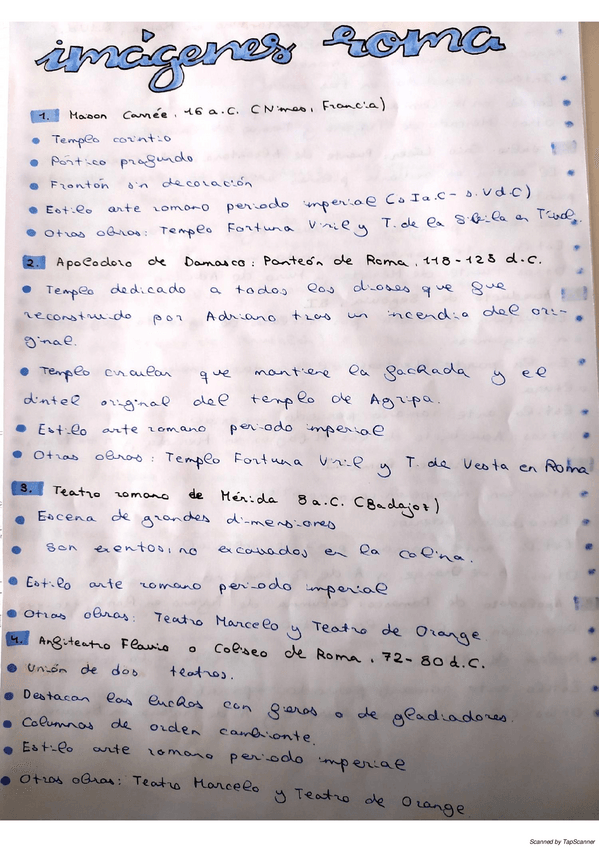 imágenes roma
1. Maison Carrée, 16 a.C. (Nimes, Francia)
• Templo corintio
• Pórtico profundo
• Frontón sin decoración
• Estilo arte romano periodo imperial (s Ia.C- s.V d.C)
• Otras obras: Templo Fortuna Viril y T. de la Sibila en Tívoli.
2. Apolodoro de Damasco: Panteón de Roma, 118-128 d.C.
• Templo dedicado a todos los dioses que fue
reconstruido por Adriano tras un incendio del ori-
ginal.
• Templo circular que mantiene la fachada y el
dintel original del templo de Agripa.
• Estilo arte romano periodo imperial
• Otras obras: Templo Fortuna Viril y T. de Vesta en Roma
3. Teatro romano de Mérida 8 a.C. (Badajoz)
• Escena de grandes dimensiones
• son exentos, no excavados en la colina.
• Estilo arte romano periodo imperial
• Otras obras: Teatro Marcelo y Teatro de Orange
4. Anfiteatro Flavio o Coliseo de Roma, 72-80 d.C.
• Unión de dos teatros.
• Destacan las luchas con fieras o de gladiadores.
• Columnas de orden cambiante.
• Estilo arte romano periodo imperial
• Otras obras: Teatro Marcelo y Teatro de Orange
Scanned by TapScanner